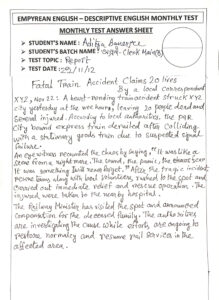 EMPYREAN ENGLISH – DESCRIPTIVE ENGLISH MONTHLY TEST
MONTHLY TEST ANSWER SHEET
➤ STUDENT'S NAME : Aditya Banerjee
➤ STUDENT'S BATCH NAME : Clerk Mains
➤ TEST TOPIC : Report
➤ TEST DATE :
Fatal Train Accident Claims 20 lives
By a local correspondent
XYZ, Nov 22 : A heart-rending train accident struck XYZ
city yesterday in the wee hours, leaving 20 people dead and
several injured. According to local authorities, the PQR
City bound express train derailed after colliding
with a stationary goods train due to suspected signal
failure.
An eye witness recounted the chaos by saying, "It was like a
scene from a night mare. The sound, the panic, the blood
It was something I will never forget." After the tragic incident
rescue teams along with local volunteers, rushed to the spot and
carried out immediate relief and rescue operation. The
injured were taken to the nearby hospital.
The Railway Minister has visited the spot and announced
compensation for the deceased family. The authorities
are investigating the cause while efforts are ongoing to
restore normalcy and resume rail service in the
affected area.